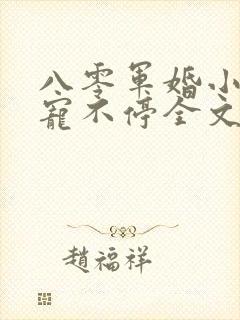 八零军婚小
宠不停全文
趙福祥